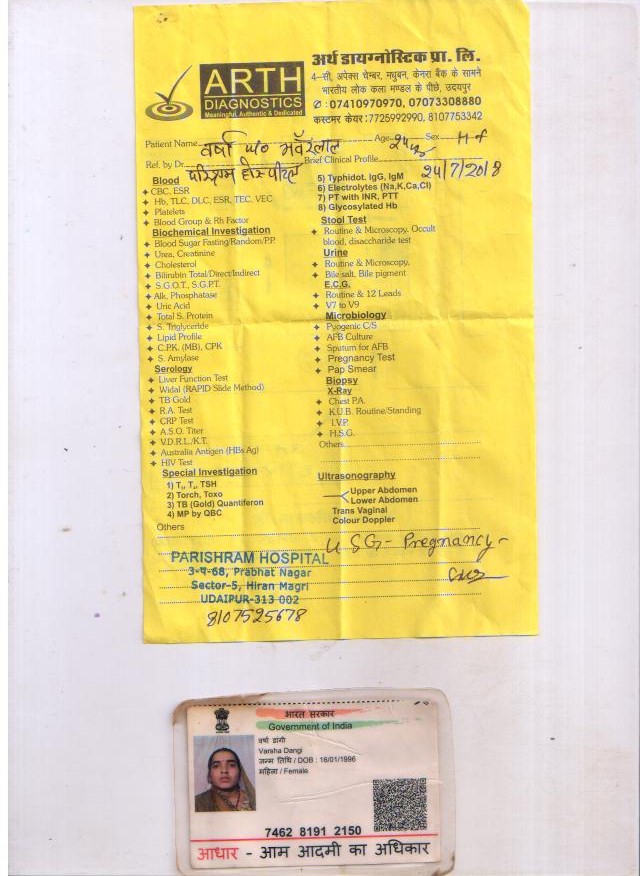 ARTH
DIAGNOSTICS
Meaningful, Authentic & Dedicated
अर्थ डायग्नोस्टिक प्रा. लि.
4-सी, अपेक्स चेम्बर, मधुबन, केनरा बैंक के सामने
भारतीय लोक कला मण्डल के पीछे, उदयपुर
07410970970, 07073308880
कस्टमर केयर : 7725992990, 8107753342
Patient Name वर्षा w/o भवँरलाल Age Sex
Ref. by Dr. परिश्रम हॉस्पीटल Brief Clinical Profile 24/7/2018
Blood
CBC, ESR
Hb, TLC, DLC, ESR, TEC, VEC
Platelets
Blood Group & Rh Factor
Biochemical Investigation
Blood Sugar Fasting/Random/P.P.
Urea, Creatinine
Cholesterol
Bilirubin Total/Direct/Indirect
S.G.O.T., S.G.P.T.
Alk. Phosphatase
Uric Acid
Total S. Protein
S. Triglyceride
Lipid Profile
C.P.K. (MB), CPK
S. Amylase
Serology
Liver Function Test
Widal (RAPID Slide Method)
TB Gold
R.A. Test
CRP Test
A.S.O. Titer
V.D.R.L./K.T.
Australia Antigen (HBs Ag)
HIV Test
Special Investigation
1) T₃, T₄, TSH
2) Torch, Toxo
3) TB (Gold) Quantiferon
4) MP by QBC
Others
5) Typhidot. IgG, IgM
6) Electrolytes (Na,K,Ca,Cl)
7) PT with INR, PTT
8) Glycosylated Hb
Stool Test
Routine & Microscopy, Occult
blood, disaccharide test
Urine
Routine & Microscopy,
Bile salt, Bile pigment
E.C.G.
Routine & 12 Leads
V7 to V9
Microbiology
Pyogenic C/S
AFB Culture
Sputum for AFB
Pregnancy Test
Pap Smear
Biopsy
X-Ray
Chest P.A.
K.U.B. Routine/Standing
I.V.P.
H.S.G.
Others
Ultrasonography
Upper Abdomen
Lower Abdomen
Trans Vaginal
Colour Doppler
USG - Pregnancy -
PARISHRAM HOSPITAL
3-प-68, Prabhat Nagar
Sector-5, Hiran Magri
UDAIPUR-313 002
8107525678
भारत सरकार
Government of India
वर्षा डांगी
Varsha Dangi
जन्म तिथि / DOB : 16/01/1996
महिला / Female
7462 8191 2150
आधार - आम आदमी का अधिकार